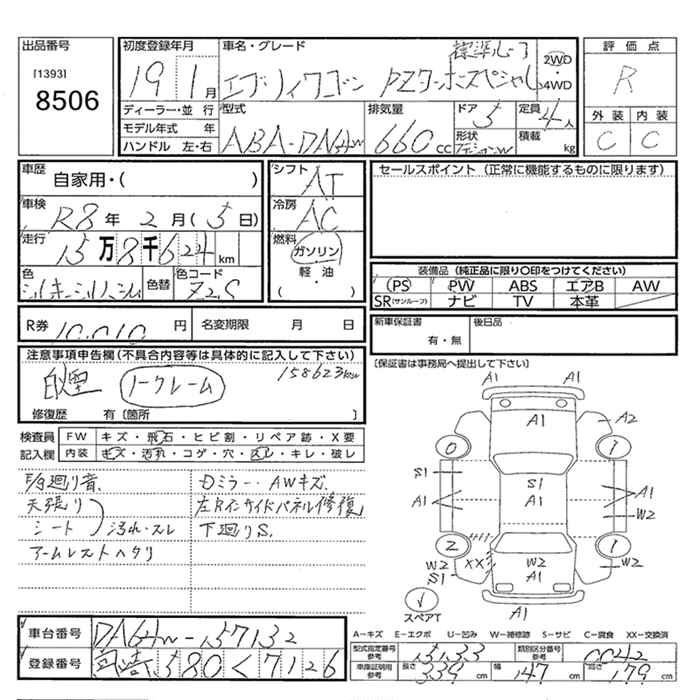 出品番号
[1393]
8506
初度登録年月
19 1月
車名・グレード
標準ルーフ
エブリィワゴン PZターボスペシャル
2WD
4WD
評価点
R
外装 内装
C C
ディーラー・並行
モデル年式 年
ハンドル 左・右
型式
ABA-DA64W
排気量
660cc
ドア
5
形状
定員
4人
積載
kg
車歴
自家用・( )
車検
R8年 2月(5日)
走行
15万8千624km
色
シルキーシルバーM
色替
色コード
Z2S
シフト
AT
冷房
AC
燃料
ガソリン
・
軽・油
( )
セールスポイント (正常に機能するものに限ります)
装備品 (純正品に限り○印をつけてください)
PS PW ABS エアB AW
SR(サンルーフ) ナビ TV 本革
R券 10,010円 名変期限 月 日
新車保証書
有・無
後日品
[保証書は事務局へ提出して下さい]
注意事項申告欄(不具合内容等は具体的に記入して下さい)
白煙 ノークレーム 158623km
修復歴 有〔箇所 〕
検査員 FW キズ・飛石・ヒビ割・リペア跡・X要
記入欄 内装 キズ・汚れ・コゲ・穴・スレ・キレ・破レ
E/G廻り音、
天張り
シート 汚れ・スレ
アームレストヘタリ
Dミラー・AWキズ、
左Rインサイドパネル修復
下廻りS、
A1
A1
A1
A2
0
7
S1
S1
A1
A1
A1
W2
2
1
XX
W2
S1
W2
A1
W2
A1
スペアT
A-キズ E-エクボ U-凹み W-補修跡 S-サビ C-腐食 XX-交換済
車台番号
DA64W-157132
登録番号
宮崎580く7126
型式指定番号
参考
15133
類別区分番号
参考
0042
車庫証明用
参考
長さ
339cm
幅
147cm
高さ
179cm